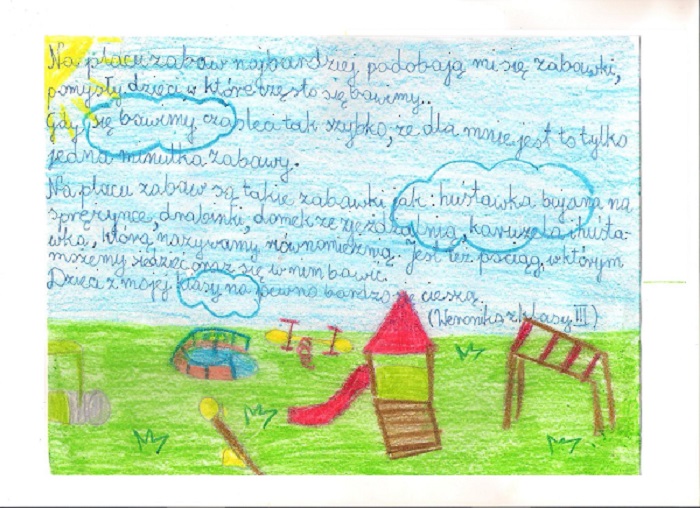 Na placu zabaw najbardziej podobają mi się zabawki,
pomysły dzieci, w które często się bawimy..
Gdy się bawimy czas leci tak szybko, że dla mnie jest to tylko
jedna minutka zabawy.
Na placu zabaw są takie zabawki jak: huśtawka, bujana na
sprężynce, drabinki, domek ze zjeżdżalnią, karuzela i huśta-
wka, którą nazywamy równoważnią. Jest też pociąg, w którym
możemy siedzieć oraz się w nim bawić.
Dzieci z mojej klasy na pewno bardzo się cieszą.
(Weronika z klasy III)